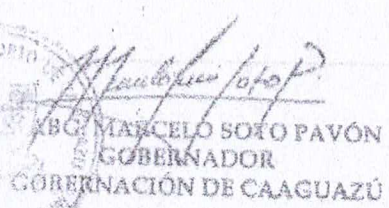 Marcelo Soto P.
ABG. MARCELO SOTO PAVÓN
GOBERNADOR
GOBERNACIÓN DE CAAGUAZÚ